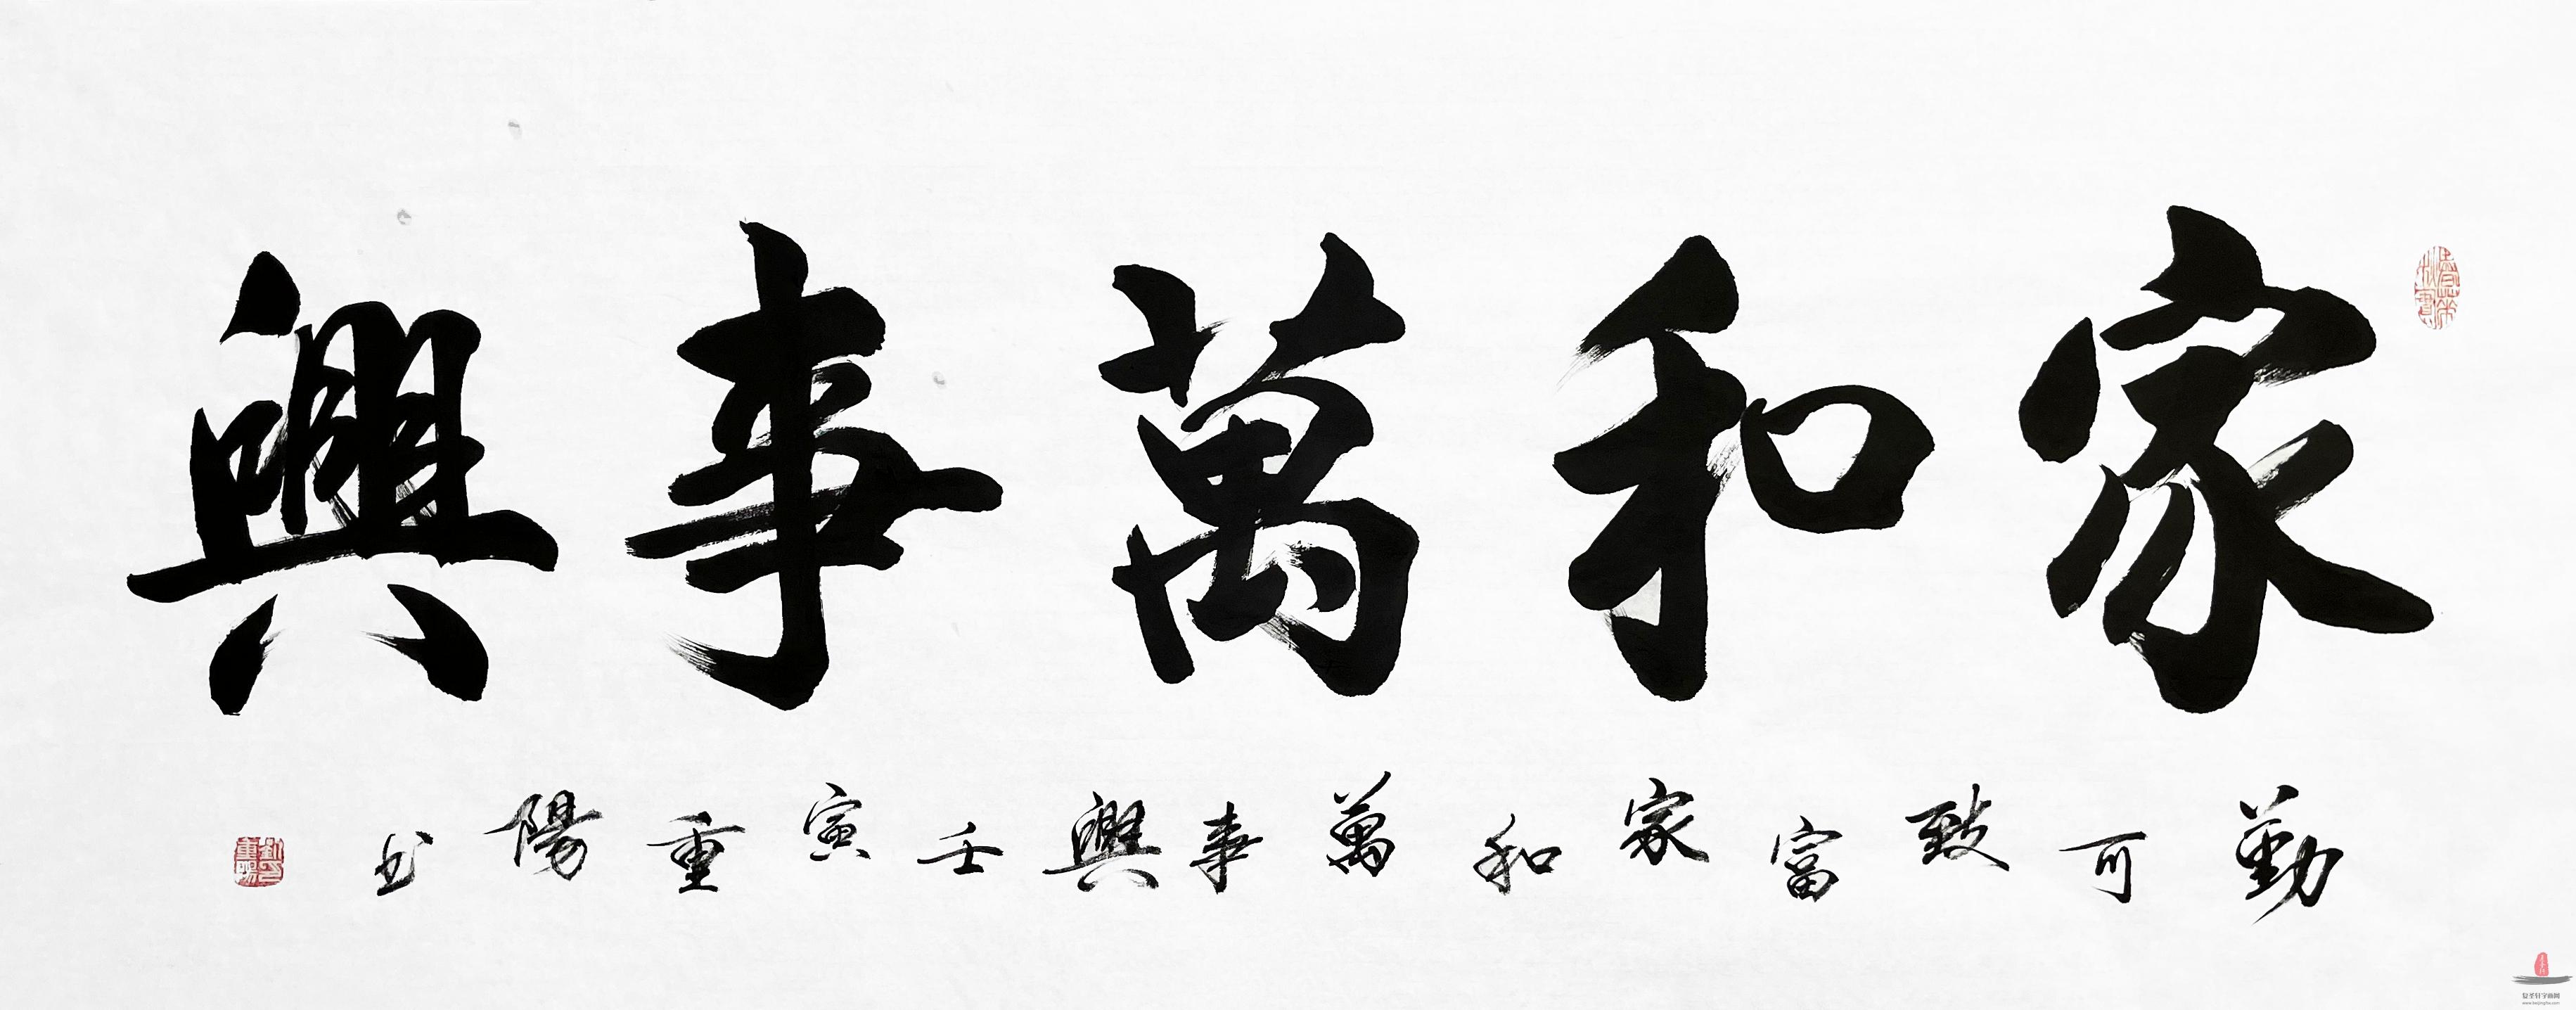 家和萬事興
勤可致富家和萬事興壬寅重陽书